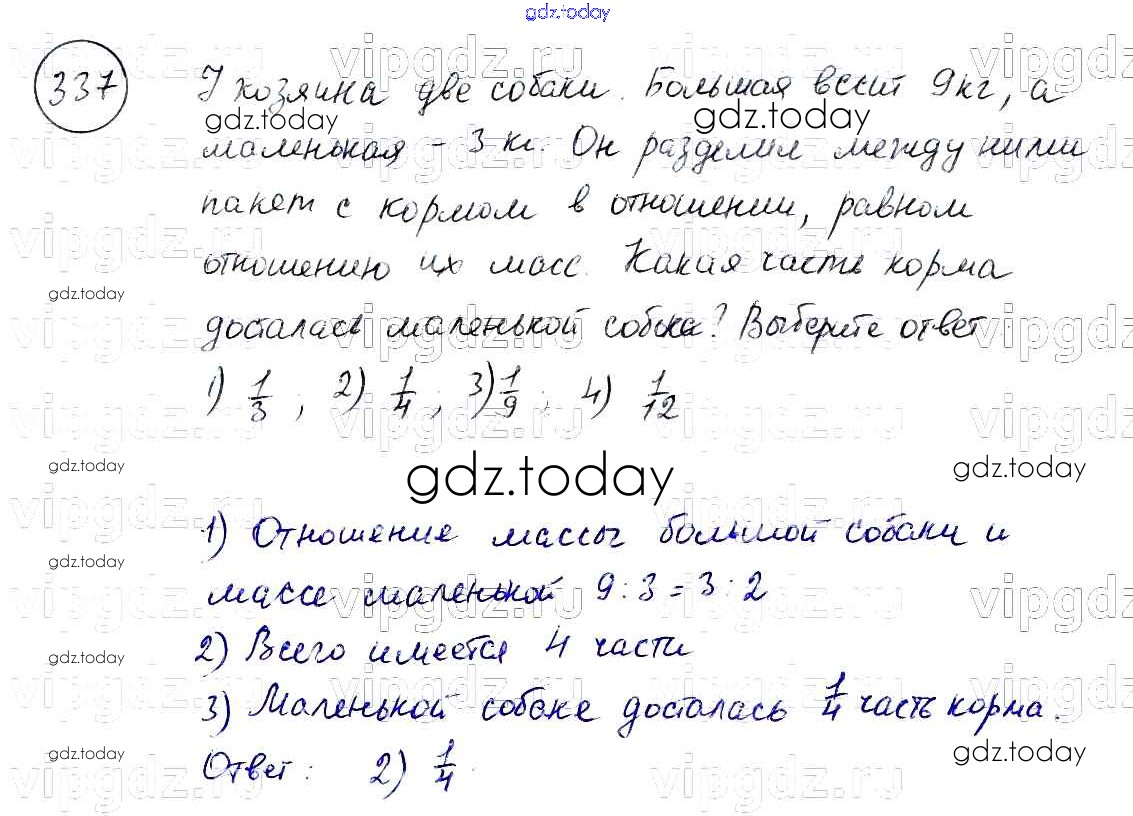 gdz.today
337
У хозяина две собаки. Большая весит 9кг, а
gdz.today gdz.today
маленькая - 3 кг. Он разделил между ними
пакет с кормом в отношении, равном
отношению их масс. Какая часть корма
gdz.today
досталась маленькой собаке? Выберите ответ
1) 1/3 ; 2) 1/4 ; 3) 1/9 ; 4) 1/12
gdz.today gdz.today gdz.today
1) Отношение массы большой собаки и
массе маленькой 9:3=3:2
gdz.today
2) Всего имеется 4 части
gdz.today
3) Маленькой собаке досталась 1/4 часть корма.
gdz.today gdz.today
Ответ: 2) 1/4
vipgdz.ru